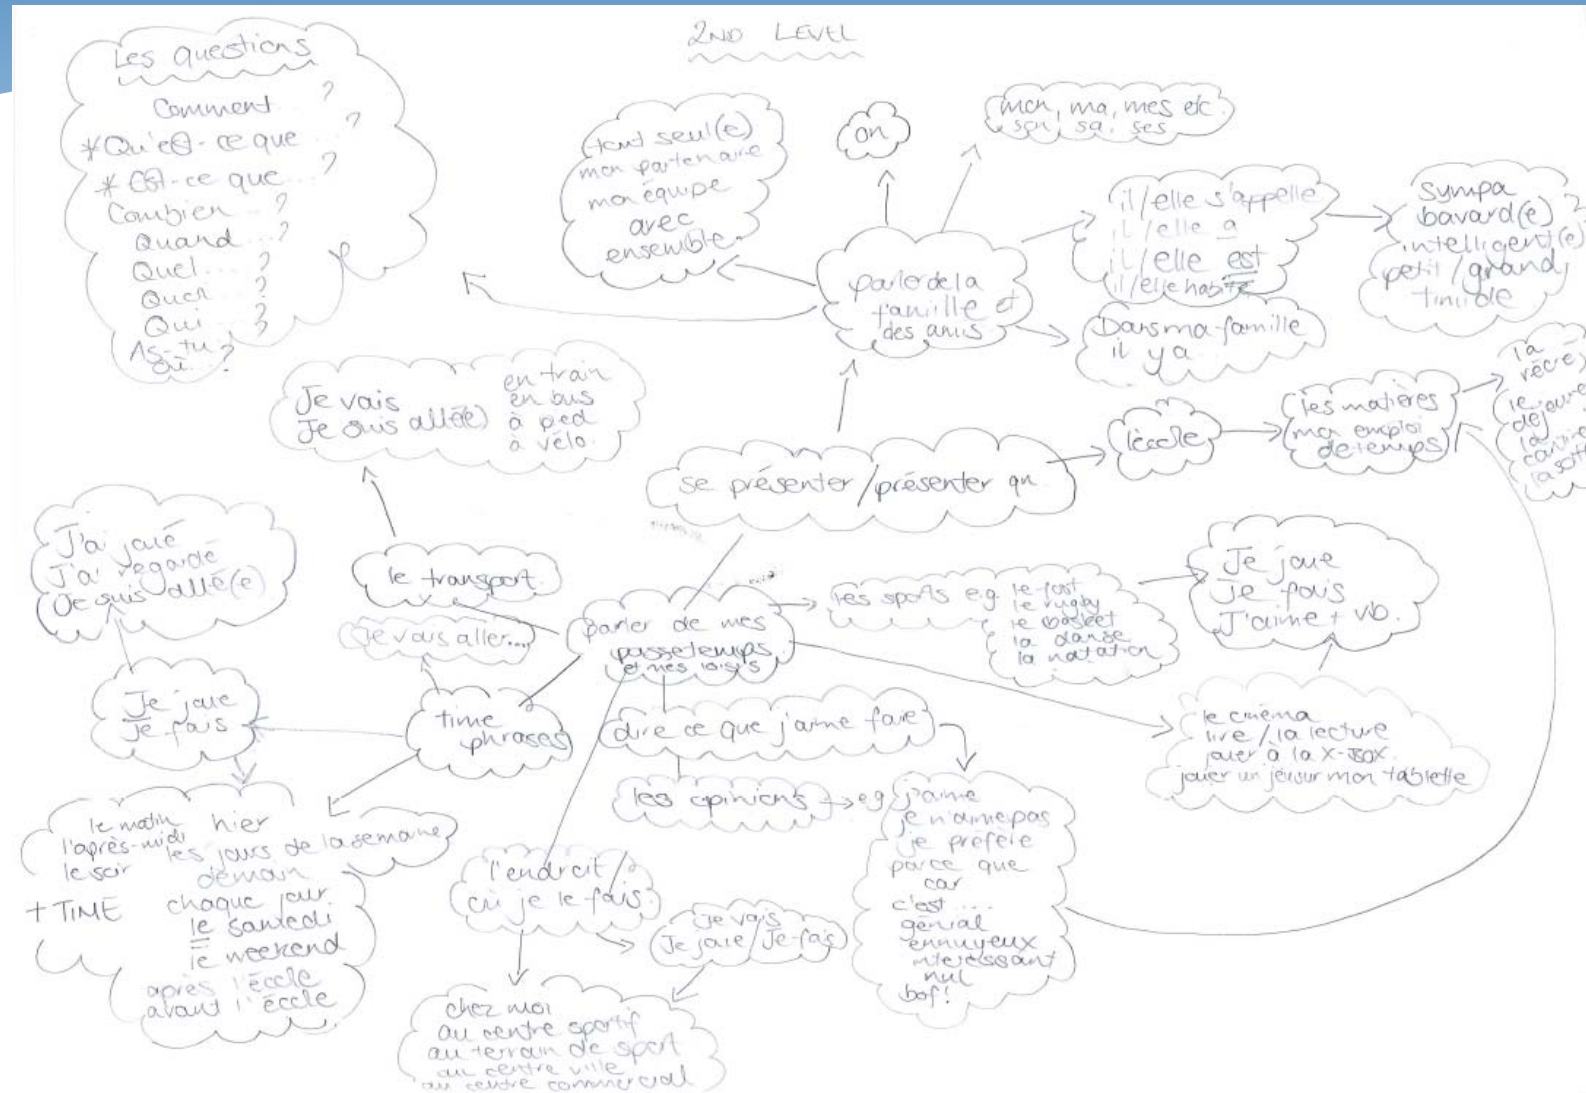 2ND LEVEL
Les questions
Comment ?
*Qu'est-ce que ...?
*Est-ce que ...?
Combien ...?
Quand ...?
Quel ... ?
Qui ... ?
As-tu
où ?
tout seul(e)
mon partenaire
mon équipe
avec
ensemble.
on
mon, ma, mes etc.
son, sa, ses
il/elle s'appelle
il/elle a
il/elle est
il/elle habite
sympa
bavard(e)
intelligent(e)
petit/grand
timide
parler de la
famille et
des amis
Dans ma famille
il y a
Je vais
Je suis allé(e)
en train
en bus
à pied
à vélo.
se présenter/présenter qn
l'école
les matières
mon emploi
de temps
la
récré
le
déjeuner
la
J'ai joué
J'ai regardé
Je suis allé(e)
le transport
Je vais aller....
Je joue
Je fais
time
phrases
parler de mes
passetemps
et mes loisirs
les sports e.g. le foot
le rugby
le basket
la danse
la natation
Je joue
Je fais
J'aime + vb.
le cinéma
lire / la lecture
jouer à la X-BOX
jouer un jeu sur mon tablette
dire ce que j'aime faire
les opinions
e.g. j'aime
je n'aime pas
je préfère
parce que
car
c'est ....
génial
ennuyeux
intéressant
nul
bof!
le matin
l'après-midi
le soir
+ TIME
hier
les jours de la semaine
demain
chaque jour
le samedi
le weekend
après l'école
avant l'école
l'endroit/
où je le fais.
Je vais
Je joue/Je fais
chez moi
au centre sportif
au terrain de sport
au centre ville
au centre commercial